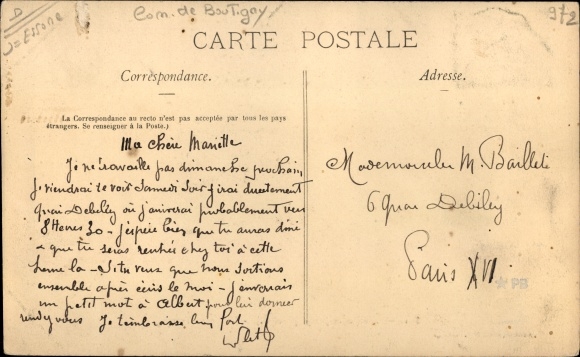 D
Essone
Com. de Boutigny
972
CARTE POSTALE
Correspondance.
Adresse.
La Correspondance au recto n'est pas acceptée par tous les pays
étrangers. Se renseigner à la Poste.)
Ma chère Mariette
Je ne travaille pas dimanche prochain,
je viendrai te voir Samedi soir j'irai directement
quai Debilly où j'arriverai probablement vers
8 Heures 30 - j'espère bien que tu auras diné
& que tu seras rentrée chez toi à cette
heure là - Si tu veux que nous sortions
ensemble après écris le moi - j'enverrais
un petit mot à Albert pour lui donner
rendez vous Je t'embrasse bien fort
Mademoiselle M. Baillet
6 Quai Debilly
Paris XVI
PB